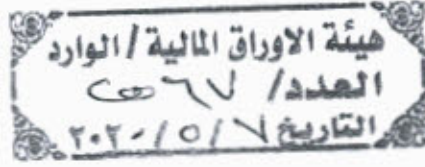 هيئة الاوراق المالية / الوارد
العدد/ ٦٧
التاريخ ٧/ ٥ /٢٠٢٠